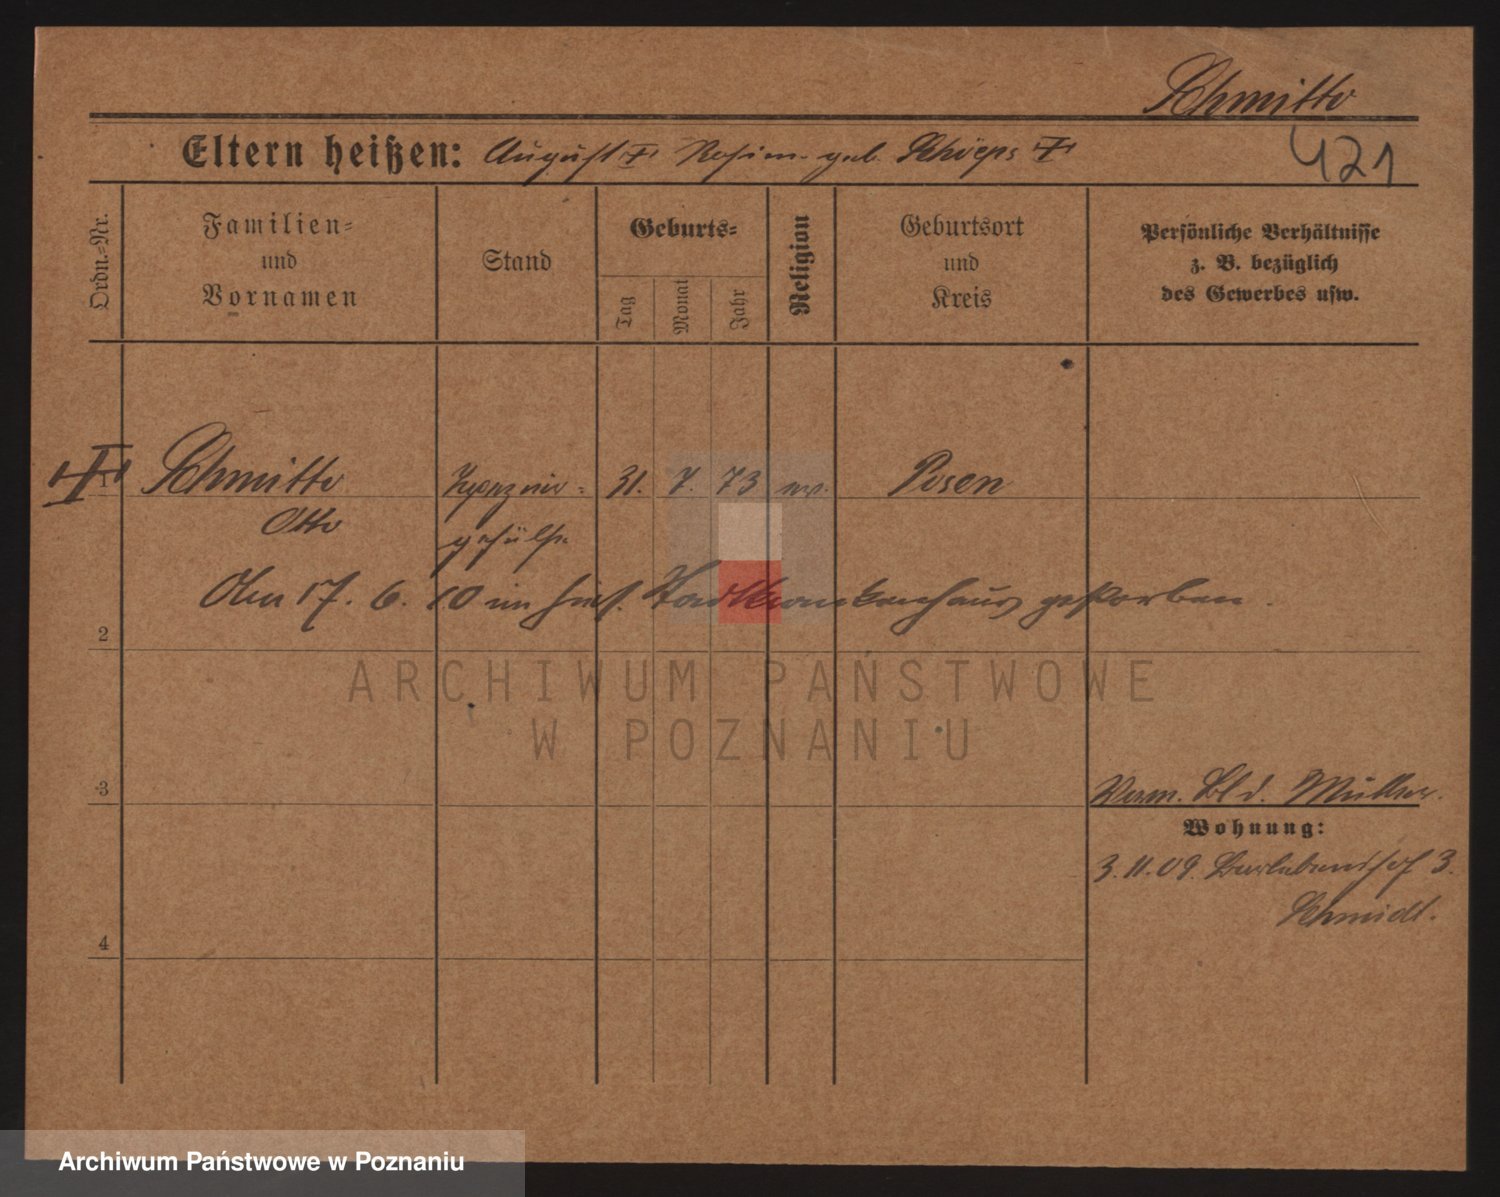 Schmitto
421
Eltern heißen: August Rosina geb. Schöeps
Ordn.-Nr.
Familien-
und
Vornamen
Stand
Geburts-
Tag
Monat
Jahr
Religion
Geburtsort
und
Kreis
Persönliche Verhältnisse
z. B. bezüglich
des Gewerbes usw.
1
Schmitto 31. 7. 73 ev. Posen
Otto gehülfe
Am 17. 6. 10 im hies. Stadtkrankenhaus gestorben.
2
ARCHIWUM PAŃSTWOWE
W POZNANIU
3
Verm. Bl d. Müller.
Wohnung:
3. 11. 09. 3.
Schmidt.
4
Archiwum Państwowe w Poznaniu